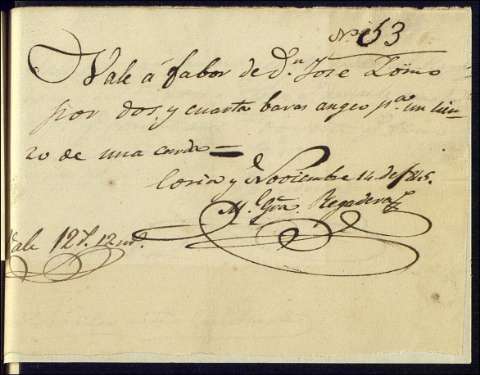 Nº 53
Vale á fabor de Dn. José Zomo
por dos y cuarta baras angeo pa. un lien-
zo de una carda
Coria y Noviembre 14 de 1845.
M. Regadera
Vale 12 r. 12 md.